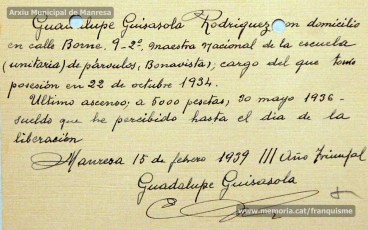 Arxiu Municipal de Manresa
Guadalupe Guisasola Rodriguez con domicilio
en calle Borne. 9-2º, maestra Nacional de la escuela
(unitaria) de párvulos, Bonavista; cargo del que tomó
posesión en 22 de octubre 1934.
Ultimo ascenso, a 5000 pesetas, 30 mayo 1936-
sueldo que he percibido hasta el dia de la
liberación
Manresa 15 de febrero 1939 III Año Triunfal
Guadalupe Guisasola
www.memoria.cat/franquisme